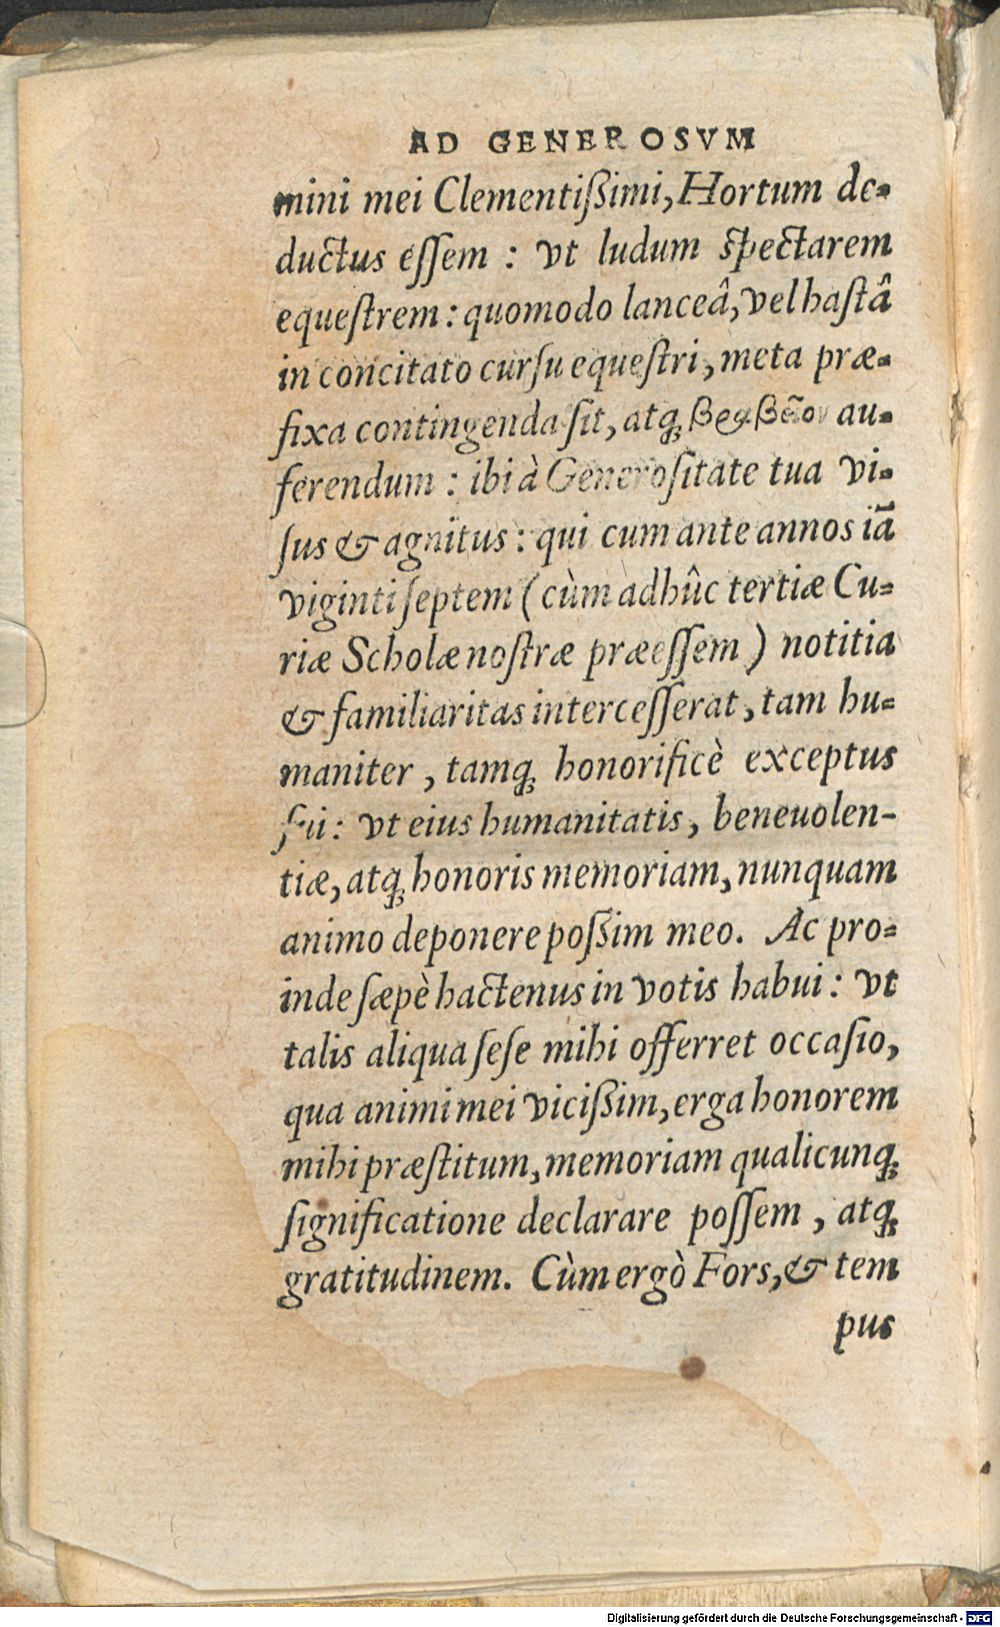 AD GENEROSVM
mini mei Clementißimi, Hortum de-
ductus essem : vt ludum spectarem
equestrem: quomodo lanceâ, vel hastâ
in concitato cursu equestri, meta præ-
fixa contingenda sit, atq; βραβεῖον au-
ferendum : ibi à Generositate tua vi-
sus & agnitus: qui cum ante annos iã
viginti septem (cùm adhûc tertiæ Cu-
riæ Scholæ nostræ præessem) notitia
& familiaritas intercesserat, tam hu-
maniter, tamq; honorificè exceptus
fui: vt eius humanitatis, beneuolen-
tiæ, atq; honoris memoriam, nunquam
animo deponere poßim meo. Ac pro-
inde sæpè hactenus in votis habui: vt
talis aliqua sese mihi offerret occasio,
qua animi mei vicißim, erga honorem
mihi præstitum, memoriam qualicunq;
significatione declarare possem, atq;
gratitudinem. Cùm ergò Fors, & tem
pus
Digitalisierung gefördert durch die Deutsche Forschungsgemeinschaft - DFG